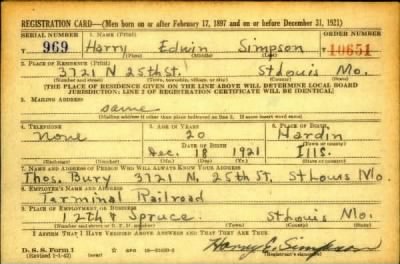 REGISTRATION CARD—(Men born on or after February 17, 1897 and on or before December 31, 1921)
SERIAL NUMBER 1. NAME (Print) ORDER NUMBER
969 Harry Edwin Simpson 10651
(First) (Middle) (Last)
2. PLACE OF RESIDENCE (Print)
3721 N 25th St. St Louis Mo.
(Number and street) (Town, township, village, or city) (County) (State)
[THE PLACE OF RESIDENCE GIVEN ON THE LINE ABOVE WILL DETERMINE LOCAL BOARD
JURISDICTION; LINE 2 OF REGISTRATION CERTIFICATE WILL BE IDENTICAL]
3. MAILING ADDRESS
same
[Mailing address if other than place indicated on line 2. If same insert word same]
4. TELEPHONE 5. AGE IN YEARS 6. PLACE OF BIRTH
None 20 Hardin
DATE OF BIRTH (Town or county)
Dec. 18 1921 Ills.
(Exchange) (Number) (Mo.) (Day) (Yr.) (State or country)
7. NAME AND ADDRESS OF PERSON WHO WILL ALWAYS KNOW YOUR ADDRESS
Thos. Bury 3721 N. 25th St. St Louis Mo.
8. EMPLOYER'S NAME AND ADDRESS
Terminal Railroad
9. PLACE OF EMPLOYMENT OR BUSINESS
12th & Spruce. St Louis Mo.
(Number and street or R. F. D. number) (Town) (County) (State)
I AFFIRM THAT I HAVE VERIFIED ABOVE ANSWERS AND THAT THEY ARE TRUE.
D. S. S. Form 1
(Revised 1-1-42) (over)
Harry E. Simpson
(Registrant's signature)